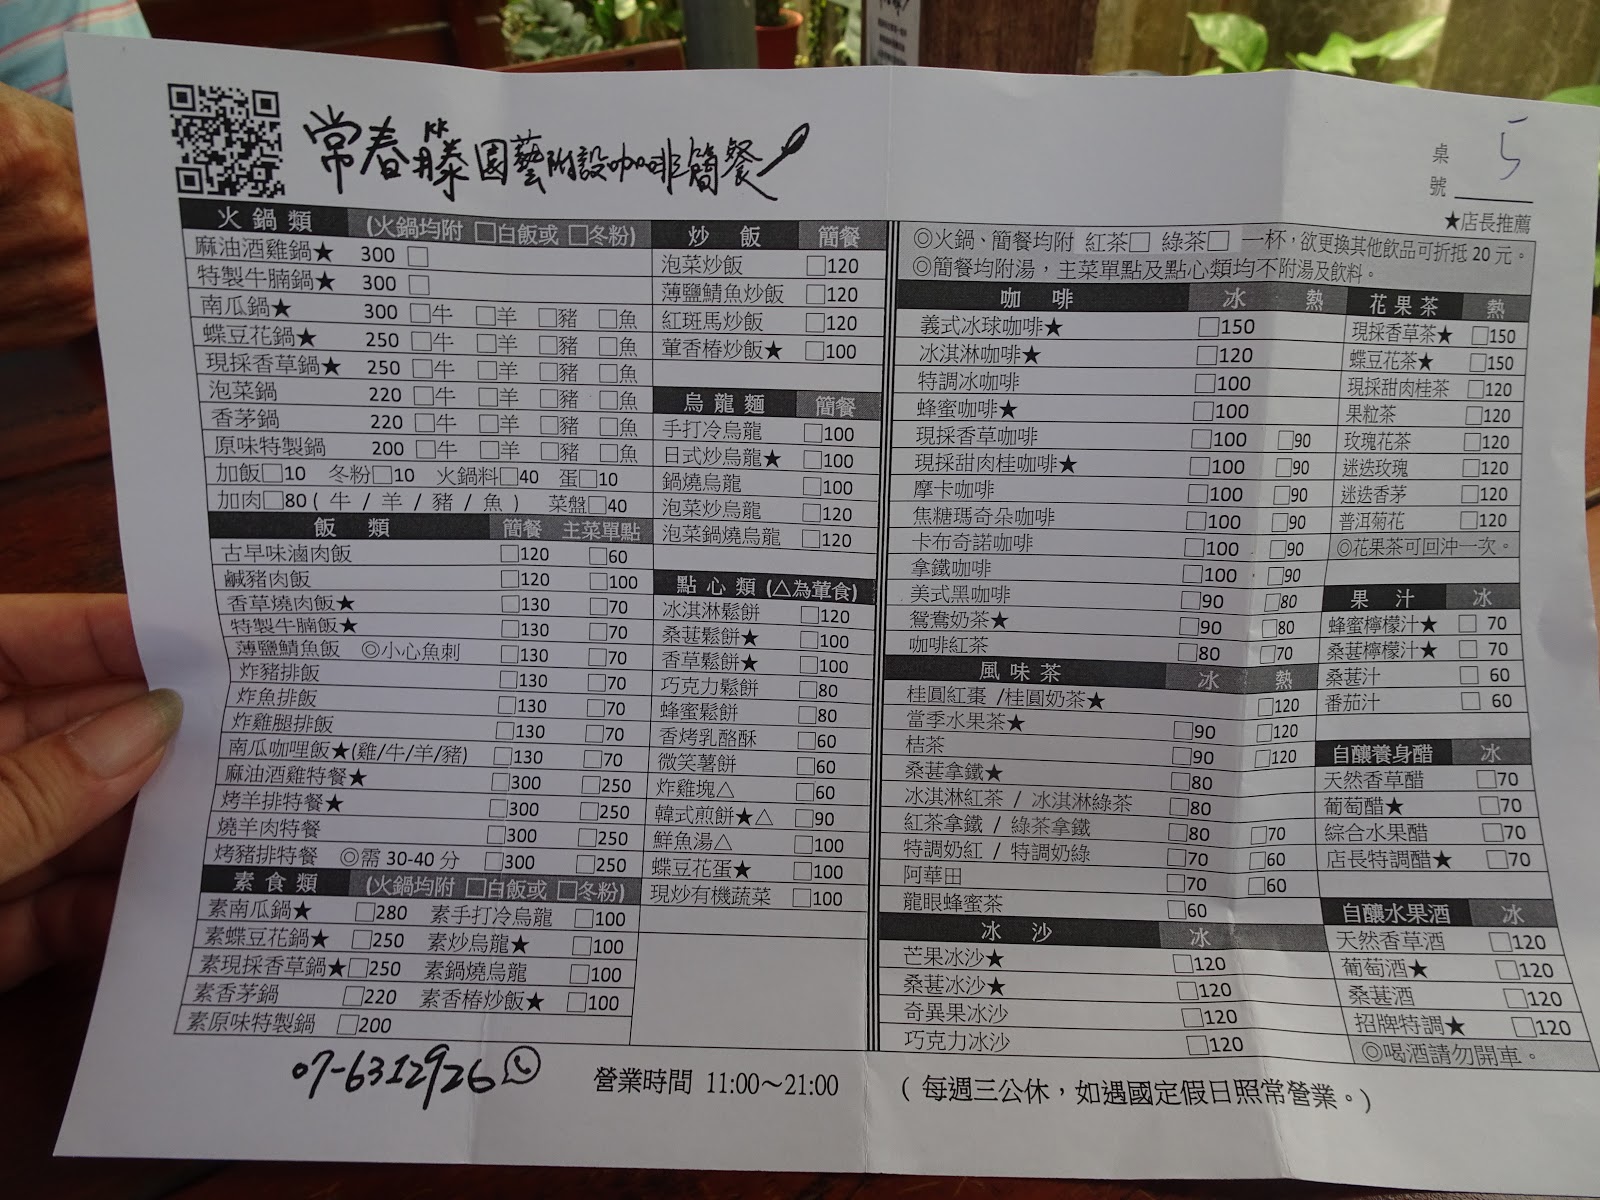 常春藤園藝附設咖啡簡餐
桌號 5
★店長推薦
火鍋類 (火鍋均附 □白飯或 □冬粉)
麻油酒雞鍋★ 300 □
特製牛腩鍋★ 300 □
南瓜鍋★ 300 □牛 □羊 □豬 □魚
蝶豆花鍋★ 250 □牛 □羊 □豬 □魚
現採香草鍋★ 250 □牛 □羊 □豬 □魚
泡菜鍋 220 □牛 □羊 □豬 □魚
香茅鍋 220 □牛 □羊 □豬 □魚
原味特製鍋 200 □牛 □羊 □豬 □魚
加飯□10 冬粉□10 火鍋料□40 蛋□10
加肉□80 ( 牛 / 羊 / 豬 / 魚 ) 菜盤□40
飯類 簡餐 主菜單點
古早味滷肉飯 □120 □60
鹹豬肉飯 □120 □100
香草燒肉飯★ □130 □70
特製牛腩飯★ □130 □70
薄鹽鯖魚飯 ◎小心魚刺 □130 □70
炸豬排飯 □130 □70
炸魚排飯 □130 □70
炸雞腿排飯 □130 □70
南瓜咖哩飯★(雞/牛/羊/豬) □130 □70
麻油酒雞特餐★ □300 □250
烤羊排特餐★ □300 □250
燒羊肉特餐 □300 □250
烤豬排特餐 ◎需 30-40 分 □300 □250
素食類 (火鍋均附 □白飯或 □冬粉)
素南瓜鍋★ □280 素手打冷烏龍 □100
素蝶豆花鍋★ □250 素炒烏龍★ □100
素現採香草鍋★ □250 素鍋燒烏龍 □100
素香茅鍋 □220 素香椿炒飯★ □100
素原味特製鍋 □200
炒飯 簡餐
泡菜炒飯 □120
薄鹽鯖魚炒飯 □120
紅斑馬炒飯 □120
葷香椿炒飯★ □100
烏龍麵 簡餐
手打冷烏龍 □100
日式炒烏龍★ □100
鍋燒烏龍 □100
泡菜炒烏龍 □120
泡菜鍋燒烏龍 □120
點心類 (△為葷食)
冰淇淋鬆餅 □120
桑葚鬆餅★ □100
香草鬆餅★ □100
巧克力鬆餅 □80
蜂蜜鬆餅 □80
香烤乳酪酥 □60
微笑薯餅 □60
炸雞塊△ □60
韓式煎餅★△ □90
鮮魚湯△ □100
蝶豆花蛋★ □100
現炒有機蔬菜 □100
◎火鍋、簡餐均附 紅茶□ 綠茶□ 一杯，欲更換其他飲品可折抵 20 元。
◎簡餐均附湯，主菜單點及點心類均不附湯及飲料。
咖啡 冰 熱
義式冰球咖啡★ □150
冰淇淋咖啡★ □120
特調冰咖啡 □100
蜂蜜咖啡★ □100
現採香草咖啡 □100 □90
現採甜肉桂咖啡★ □100 □90
摩卡咖啡 □100 □90
焦糖瑪奇朵咖啡 □100 □90
卡布奇諾咖啡 □100 □90
拿鐵咖啡 □100 □90
美式黑咖啡 □90 □80
鴛鴦奶茶★ □90 □80
咖啡紅茶 □80 □70
風味茶 冰 熱
桂圓紅棗 /桂圓奶茶★ □120
當季水果茶★ □90 □120
桔茶 □90 □120
桑葚拿鐵★ □80
冰淇淋紅茶 / 冰淇淋綠茶 □80
紅茶拿鐵 / 綠茶拿鐵 □80 □70
特調奶紅 / 特調奶綠 □70 □60
阿華田 □70 □60
龍眼蜂蜜茶 □60
冰沙 冰
芒果冰沙★ □120
桑葚冰沙★ □120
奇異果冰沙 □120
巧克力冰沙 □120
花果茶 熱
現採香草茶★ □150
蝶豆花茶★ □150
現採甜肉桂茶 □120
果粒茶 □120
玫瑰花茶 □120
迷迭玫瑰 □120
迷迭香茅 □120
普洱菊花 □120
◎花果茶可回沖一次。
果汁 冰
蜂蜜檸檬汁★ □ 70
桑葚檸檬汁★ □ 70
桑葚汁 □ 60
番茄汁 □ 60
自釀養身醋 冰
天然香草醋 □70
葡萄醋★ □70
綜合水果醋 □70
店長特調醋★ □70
自釀水果酒 冰
天然香草酒 □120
葡萄酒★ □120
桑葚酒 □120
招牌特調★ □120
◎喝酒請勿開車。
07-6312926
營業時間 11:00～21:00
( 每週三公休，如遇國定假日照常營業。)